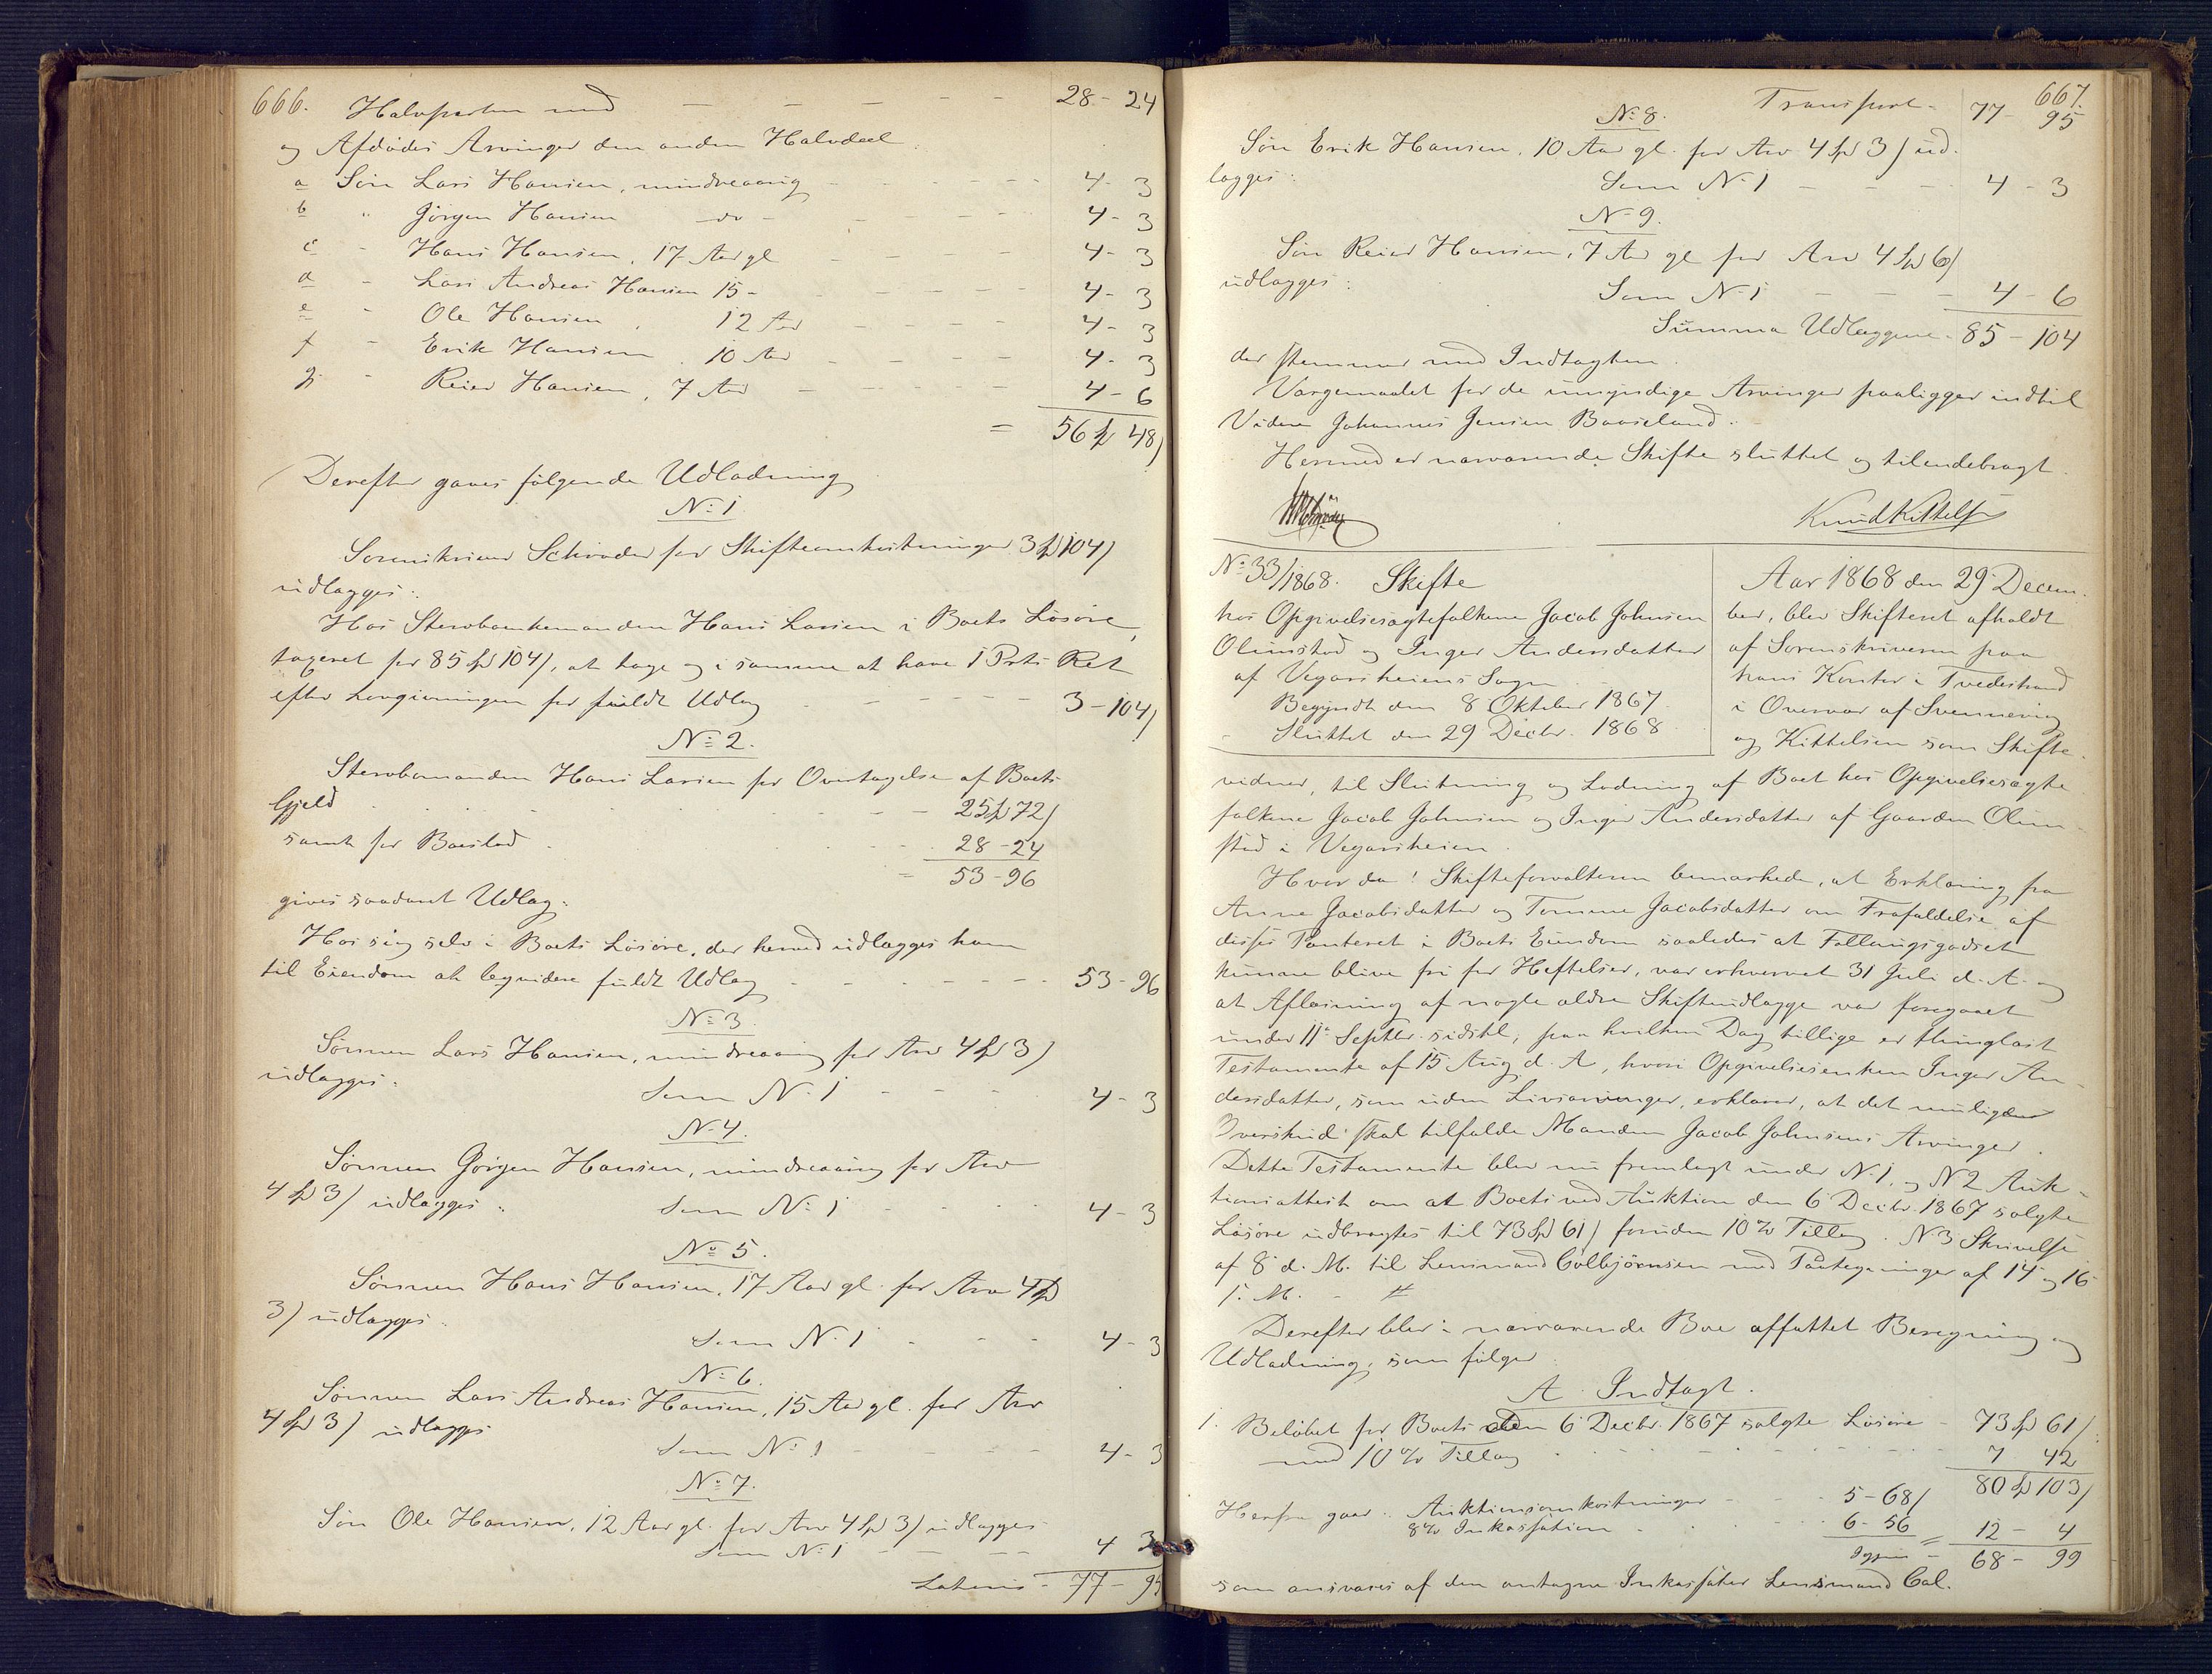 666.
Halvparten med — — — — — 28 - 24
og Afdødes Arvinger den anden Halvdeel:
a Søn Lars Hansen, mindreaarig — 4 - 3
b " Jørgen Hansen — do — 4 - 3
c - Hans Hansen, 17 Aar gl — 4 - 3
d - Lars Andreas Hansen 15 - — 4 - 3
e - Ole Hansen, 12 Aar — 4 - 3
f - Erik Hansen, 10 Aar — 4 - 3
g - Reier Hansen, 7 Aar — 4 - 6
= 56 Spd 48 ſ
Derefter gaves følgende Udlodning
No 1.
Sorenskriver Schrøder for Skifteomkostninger 3 Spd 104 ſ
udlægges:
Hos Stervboenkemanden Hans Larsen i Boets Løsøre,
taxeret for 85 Spd 104 ſ, at tage og i samme at have 1 Prts Ret
efter Lovgivningen for fuldt Udlæg — 3 - 104 ſ
No 2.
Stervbomanden Hans Larsen for Overtagelse af Boets
Gjeld — 25 Spd 72 ſ
samt for Boeslod — 28 - 24
= 53 - 96
gives saadant Udlæg:
Hos sig selv i Boets Løsøre, der herved udlægges ham
til Eiendom at begvidere fuldt Udlæg — 53 - 96
No 3.
Sønnen Lars Hansen, mindreaarig for Arv 4 Spd 3 ſ
udlægges: Som No 1 — 4 - 3
No 4.
Sønnen Jørgen Hansen, mindreaarig for Arv
4 Spd 3 ſ udlægges: Som No 1 — 4 - 3
No 5.
Sønnen Hans Hansen, 17 Aar gl. for Arv 4 Spd
3 ſ udlægges: Som No 1 — 4 - 3
No 6.
Sønnen Lars Andreas Hansen, 15 Aar gl. for Arv
4 Spd 3 ſ udlægges Som No 1 — 4 - 3
No 7.
Søn Ole Hansen, 12 Aar gl. for Arv 4 Spd 3 ſ udlægges
Som No 1 — 4 3
Lateris - 77 - 95
667.
Transport - 77 - 95
No 8.
Søn Erik Hansen, 10 Aar gl. for Arv 4 Spd 3 ſ ud-
lægges: Som No 1 — 4 - 3
No 9.
Søn Reier Hansen, 7 Aar gl for Arv 4 Spd 6 ſ
udlægges: Som No 1 — 4 - 6
Summa Udlæggene - 85 - 104
der stemmer med Indtægten.
Værgemaalet for de umyndige Arvinger paaligger indtil
Videre Johannes Jensen Baaseland.
Hermed er nærværende Skifte sluttet og tilendebragt.
Schrøder Knud Kittelsen
No 33/1868. Skifte
hos Opgivelsesægtefolkene Jacob Johnsen
Olimstad og Inger Andersdatter
af Vegarsheiens Sogn
Begyndt den 8 Oktober 1867.
Sluttet den 29 Decbr. 1868
Aar 1868 den 29 Decem-
ber, blev Skifteret afholdt
af Sorenskriveren paa
hans Kontor i Tvedestrand
i Overvær af Svennevig
og Kittelsen som Skifte-
vidner, til Slutning og Lodning af Boet hos Opgivelsesægte
folkene Jacob Johnsen og Inger Andersdatter af Gaarden Olim-
stad i Vegarsheien.
Hvor da! Skifteforvalteren bemærkede, at Erklæring fra
Anne Jacobsdatter og Tomine Jacobsdatter om Frafaldelse af
disses Panteret i Boets Eiendom saaledes at Føllaugsgodset
kunne blive fri for Heftelser, var erhvervet 31 Juli d. A. og
at Aflæsning af nogle ældre Skifteudlægge var foregaaet
under 11te Septbr. sidstl, paa hvilken Dag tillige er thinglæst
Testamente af 15 Aug. d. A, hvori Opgivelsesenken Inger An-
dersdatter, som uden Livsarvinger, erklærer, at det muligens
Overskud skal tilfalde Manden Jacob Johnsens Arvinger.
Dette Testamente blev nu fremlagt under No 1, og No 2 Auk-
tionsattest om at Boets ved Auktion den 6 Decbr. 1867 solgte
Løsøre udbragtes til 73 Spd 61 ſ foruden 10% Tillæg. No 3 Skrivelse
af 8 d. M. til Lensmand Colbjørnsen med Paategninger af 14 og 16
s. M.
Derefter blev i nærværende Boe affattet Beregning og
Udlodning, som følger
A. Indtægt.
1. Beløbet for Boets den 6 Decbr. 1867 solgte Løsøre - 73 Spd 61 ſ
med 10% Tillæg — 7 - 42
80 Spd 103 ſ
Herfra gaar: Auktionsomkostninger — 5 - 68 ſ
8% Inkassation — 6 - 56 = 12 - 4
Igjen - 68 - 99
som ansvares af den antagne Inkassator Lensmand Col.